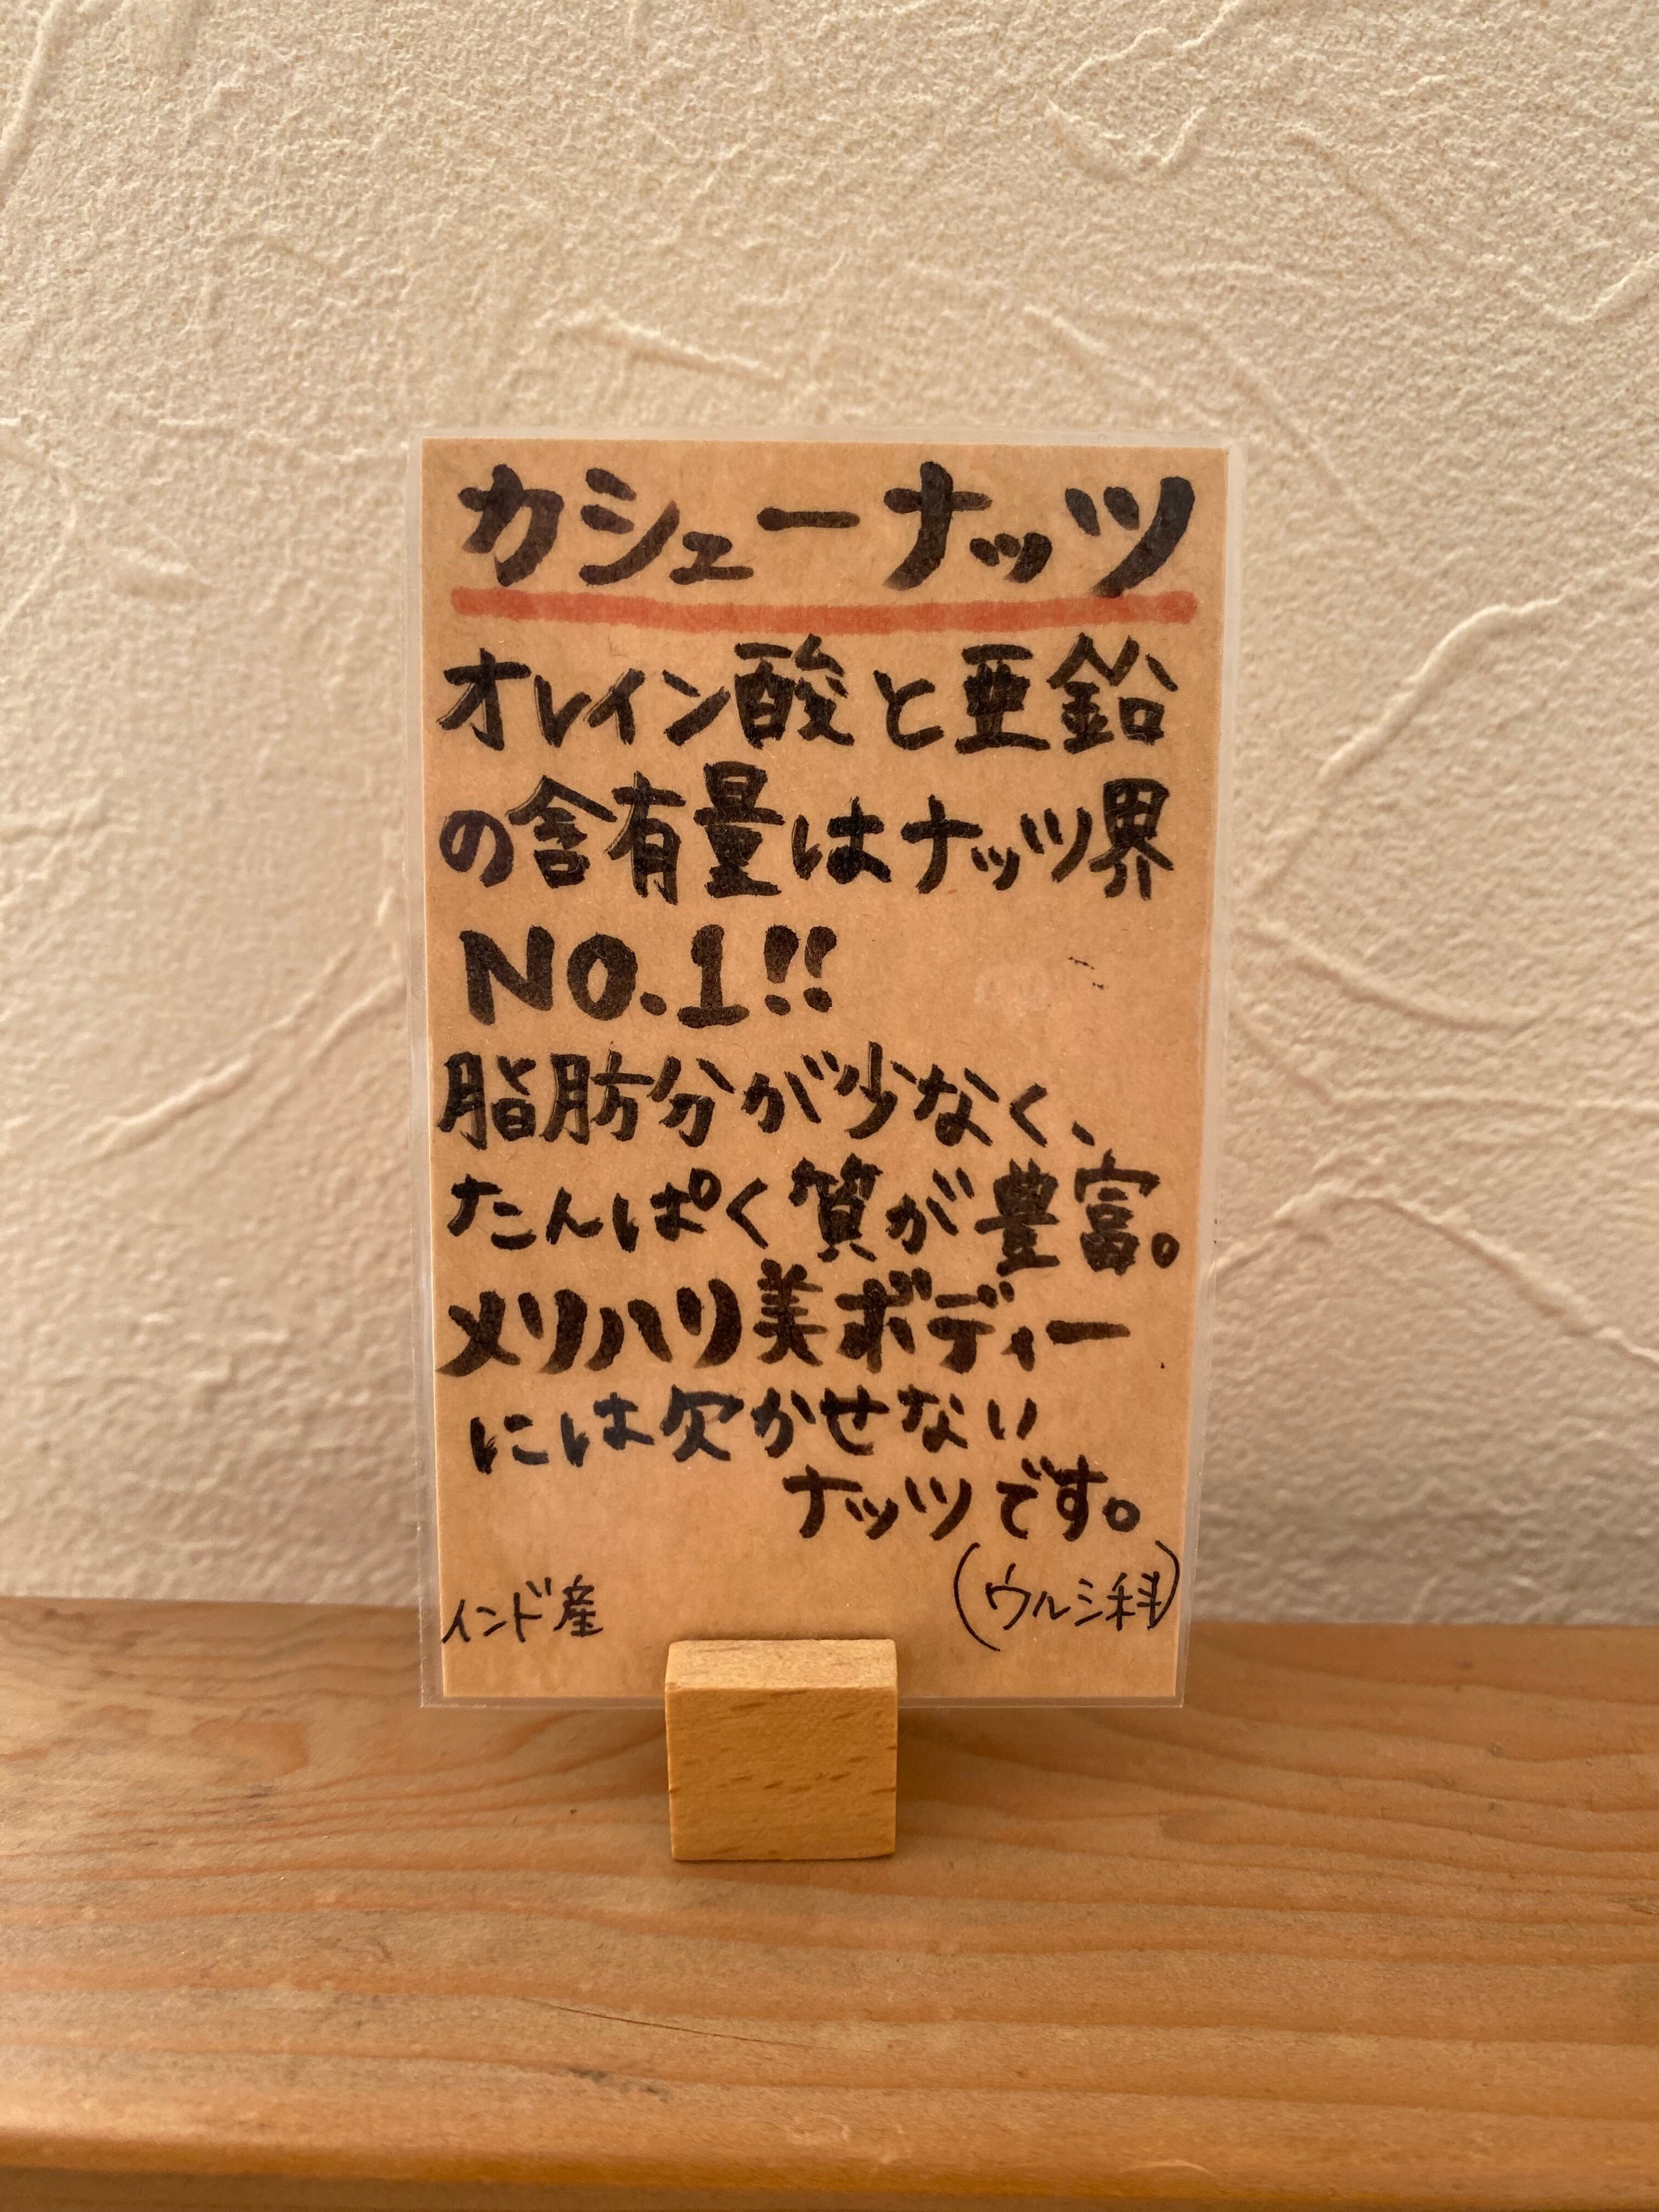 カシューナッツ
オレイン酸と亜鉛
の含有量はナッツ界
NO.1!!
脂肪分が少なく、
たんぱく質が豊富。
メリハリ美ボディー
には欠かせない
ナッツです。
(ウルシ科)
インド産